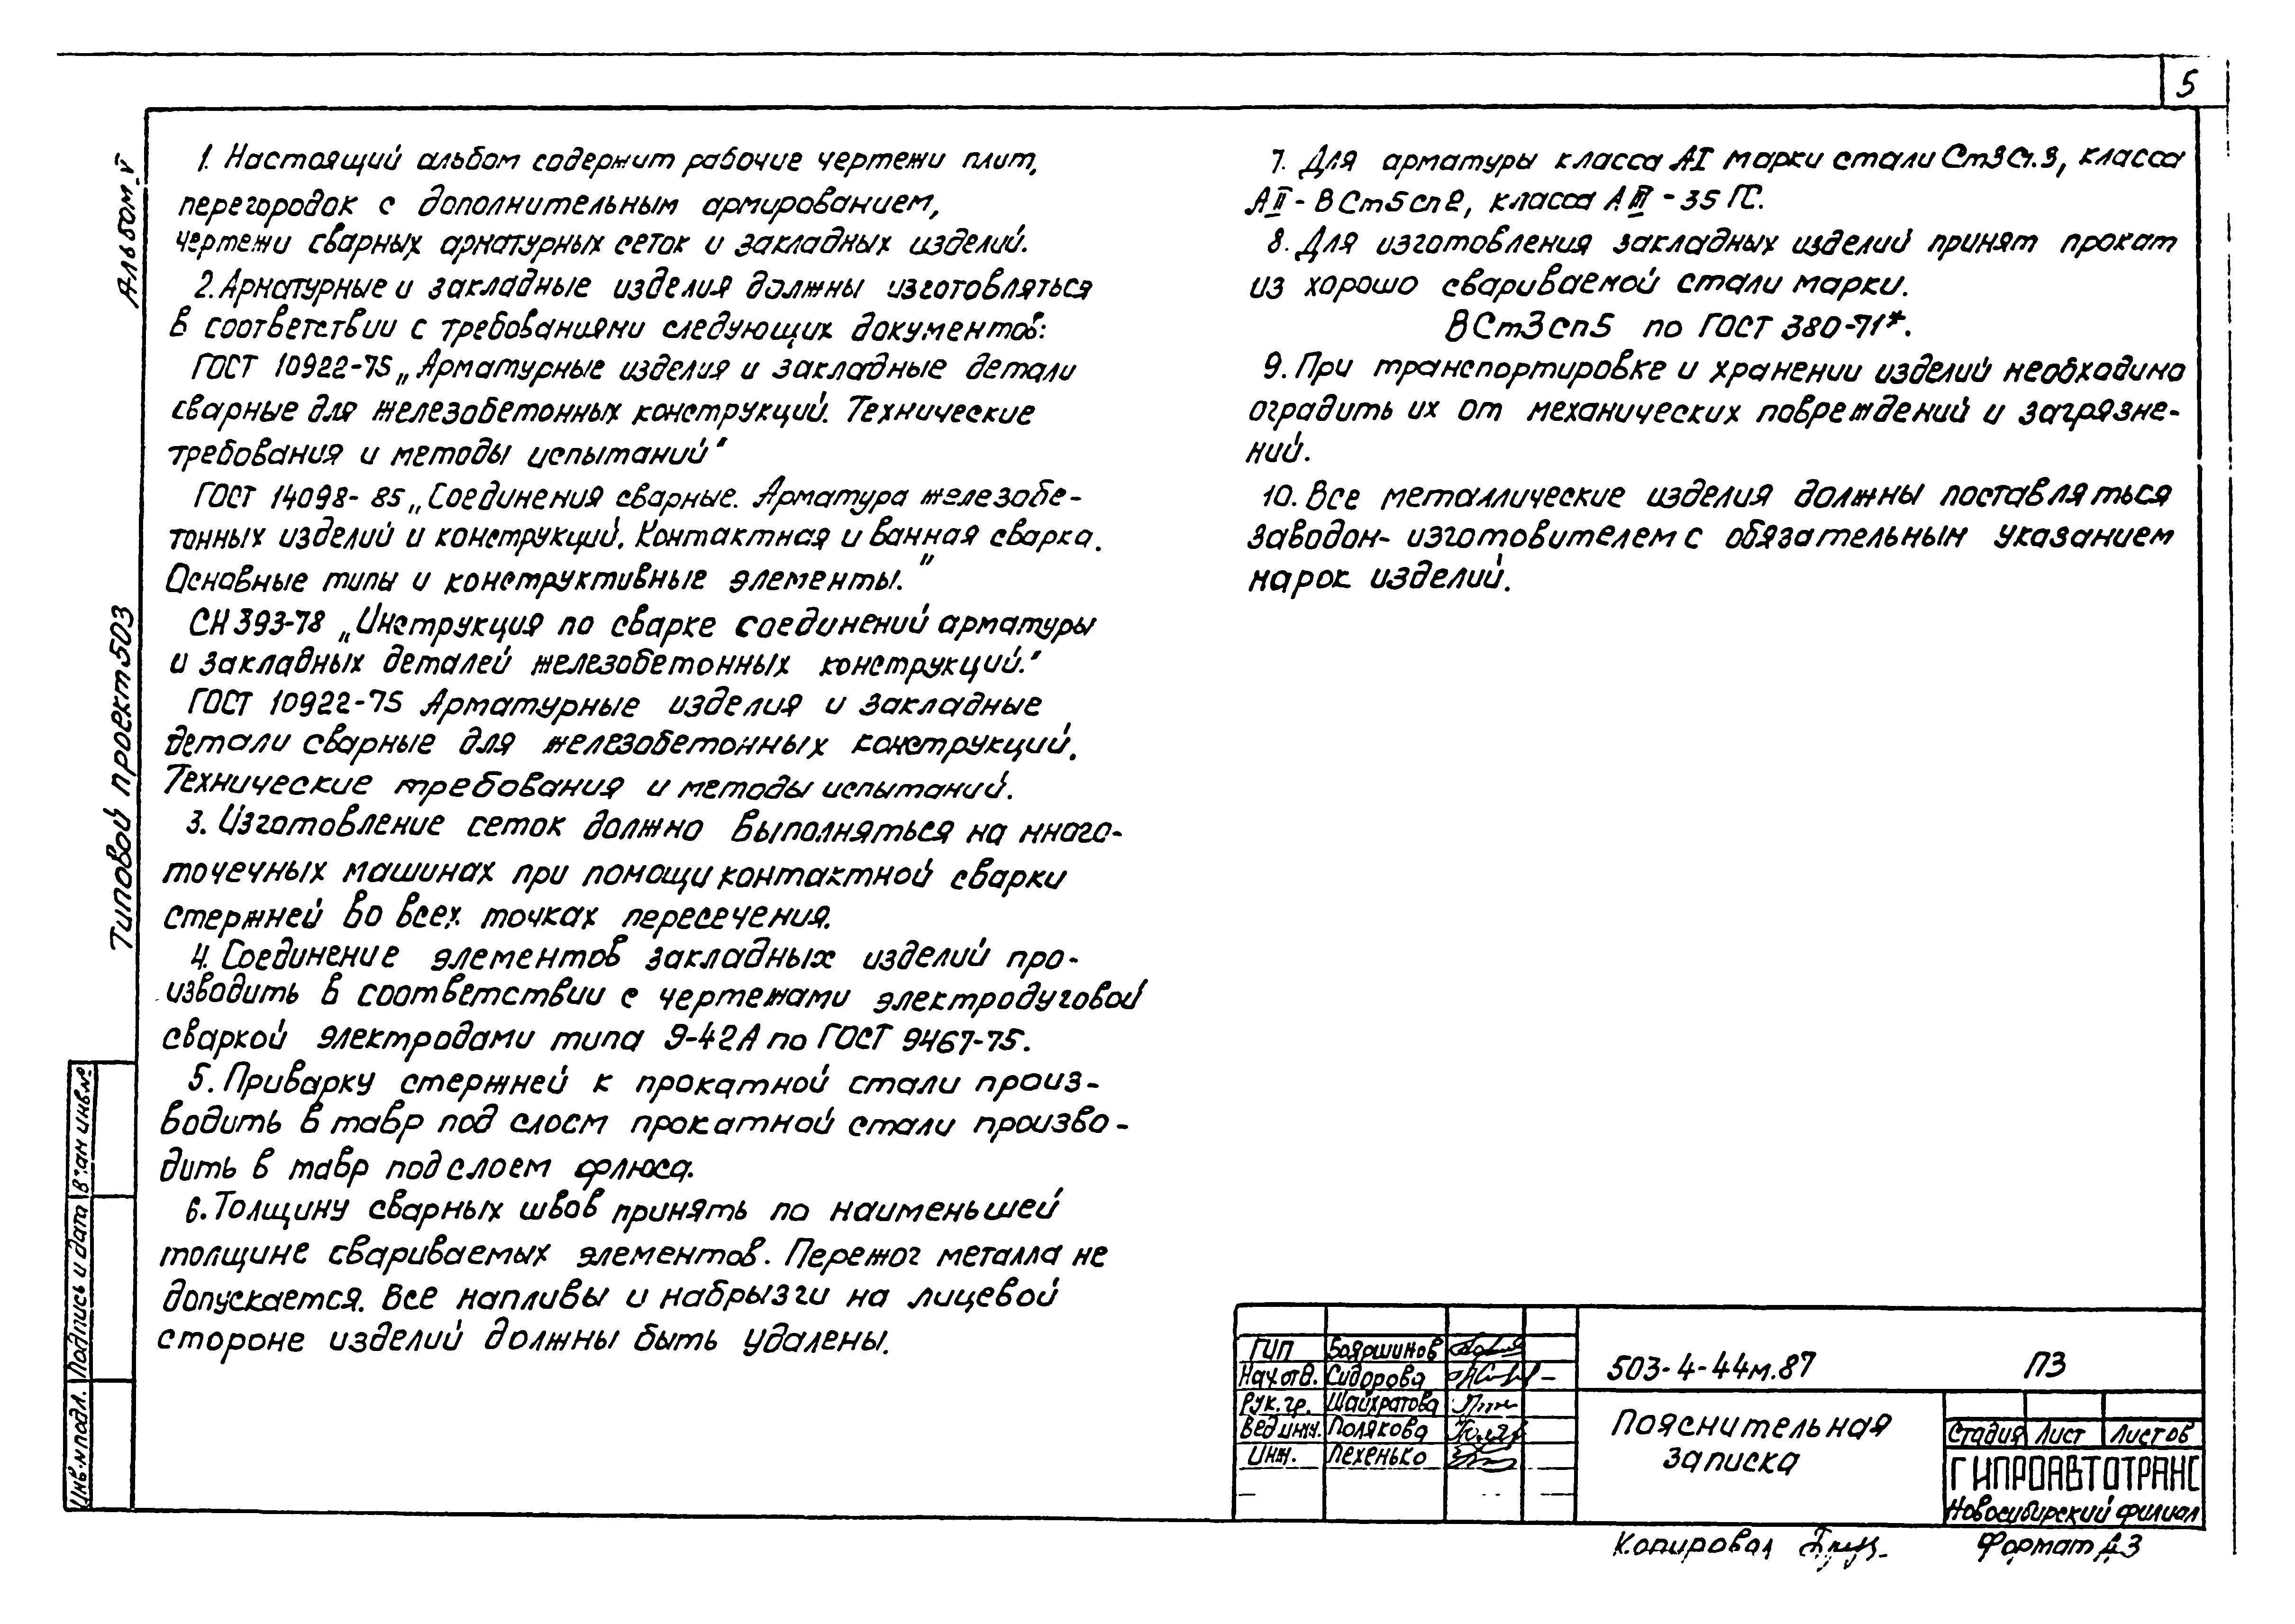 5
Альбом V
Типовой проект 503
1. Настоящий альбом содержит рабочие чертежи плит,
перегородок с дополнительным армированием,
чертежи сварных арматурных сеток и закладных изделий.
2. Арматурные и закладные изделия должны изготовляться
в соответствии с требованиями следующих документов:
ГОСТ 10922-75 „Арматурные изделия и закладные детали
сварные для железобетонных конструкций. Технические
требования и методы испытаний"
ГОСТ 14098-85 „Соединения сварные. Арматура железобе-
тонных изделий и конструкций. Контактная и ванная сварка.
Основные типы и конструктивные элементы."
СН 393-78 „Инструкция по сварке соединений арматуры
и закладных деталей железобетонных конструкций."
ГОСТ 10922-75 Арматурные изделия и закладные
детали сварные для железобетонных конструкций.
Технические требования и методы испытаний.
3. Изготовление сеток должно выполняться на много-
точечных машинах при помощи контактной сварки
стержней во всех точках пересечения.
4. Соединение элементов закладных изделий про-
изводить в соответствии с чертежами электродуговой
сваркой электродами типа Э-42А по ГОСТ 9467-75.
5. Приварку стержней к прокатной стали произ-
водить в тавр под слоем прокатной стали произво-
дить в тавр под слоем флюса.
6. Толщину сварных швов принять по наименьшей
толщине свариваемых элементов. Пережог металла не
допускается. Все напливы и набрызги на лицевой
стороне изделий должны быть удалены.
7. Для арматуры класса АI марки стали Ст3Сп.3, класса
АII - ВСт5сп2, класса АIII - 35 ГС.
8. Для изготовления закладных изделий принят прокат
из хорошо свариваемой стали марки.
ВСт3сп5 по ГОСТ 380-71*.
9. При транспортировке и хранении изделий необходимо
оградить их от механических повреждений и загрязне-
ний.
10. Все металлические изделия должны поставляться
заводом-изготовителем с обязательным указанием
марок изделий.
Взам инв.№
Подпись и дата
Инв.№подл.
ГИП Бояршинов
Нач.отд. Сидорова
Рук.гр. Шайхратова
Вед инж. Полякова
Инж. Лехенько
503-4-44м.87 ПЗ
Пояснительная
записка
Стадия Лист Листов
ГИПРОАВТОТРАНС
Новосибирский филиал
Копировал
Формат А3